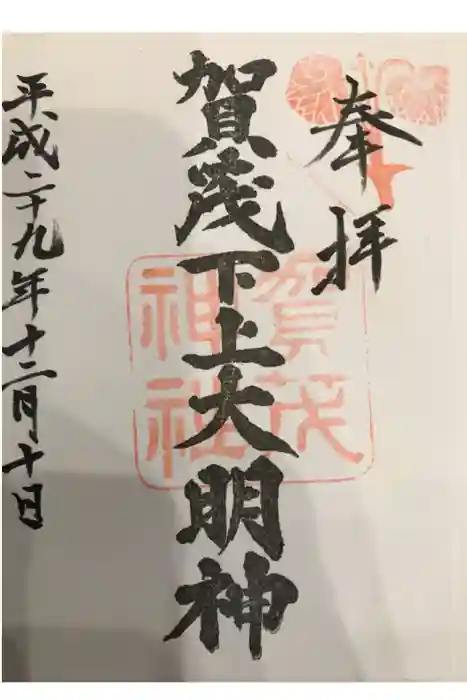 奉拝
賀茂下上大明神
賀茂
神社
平成二十九年十二月、十日